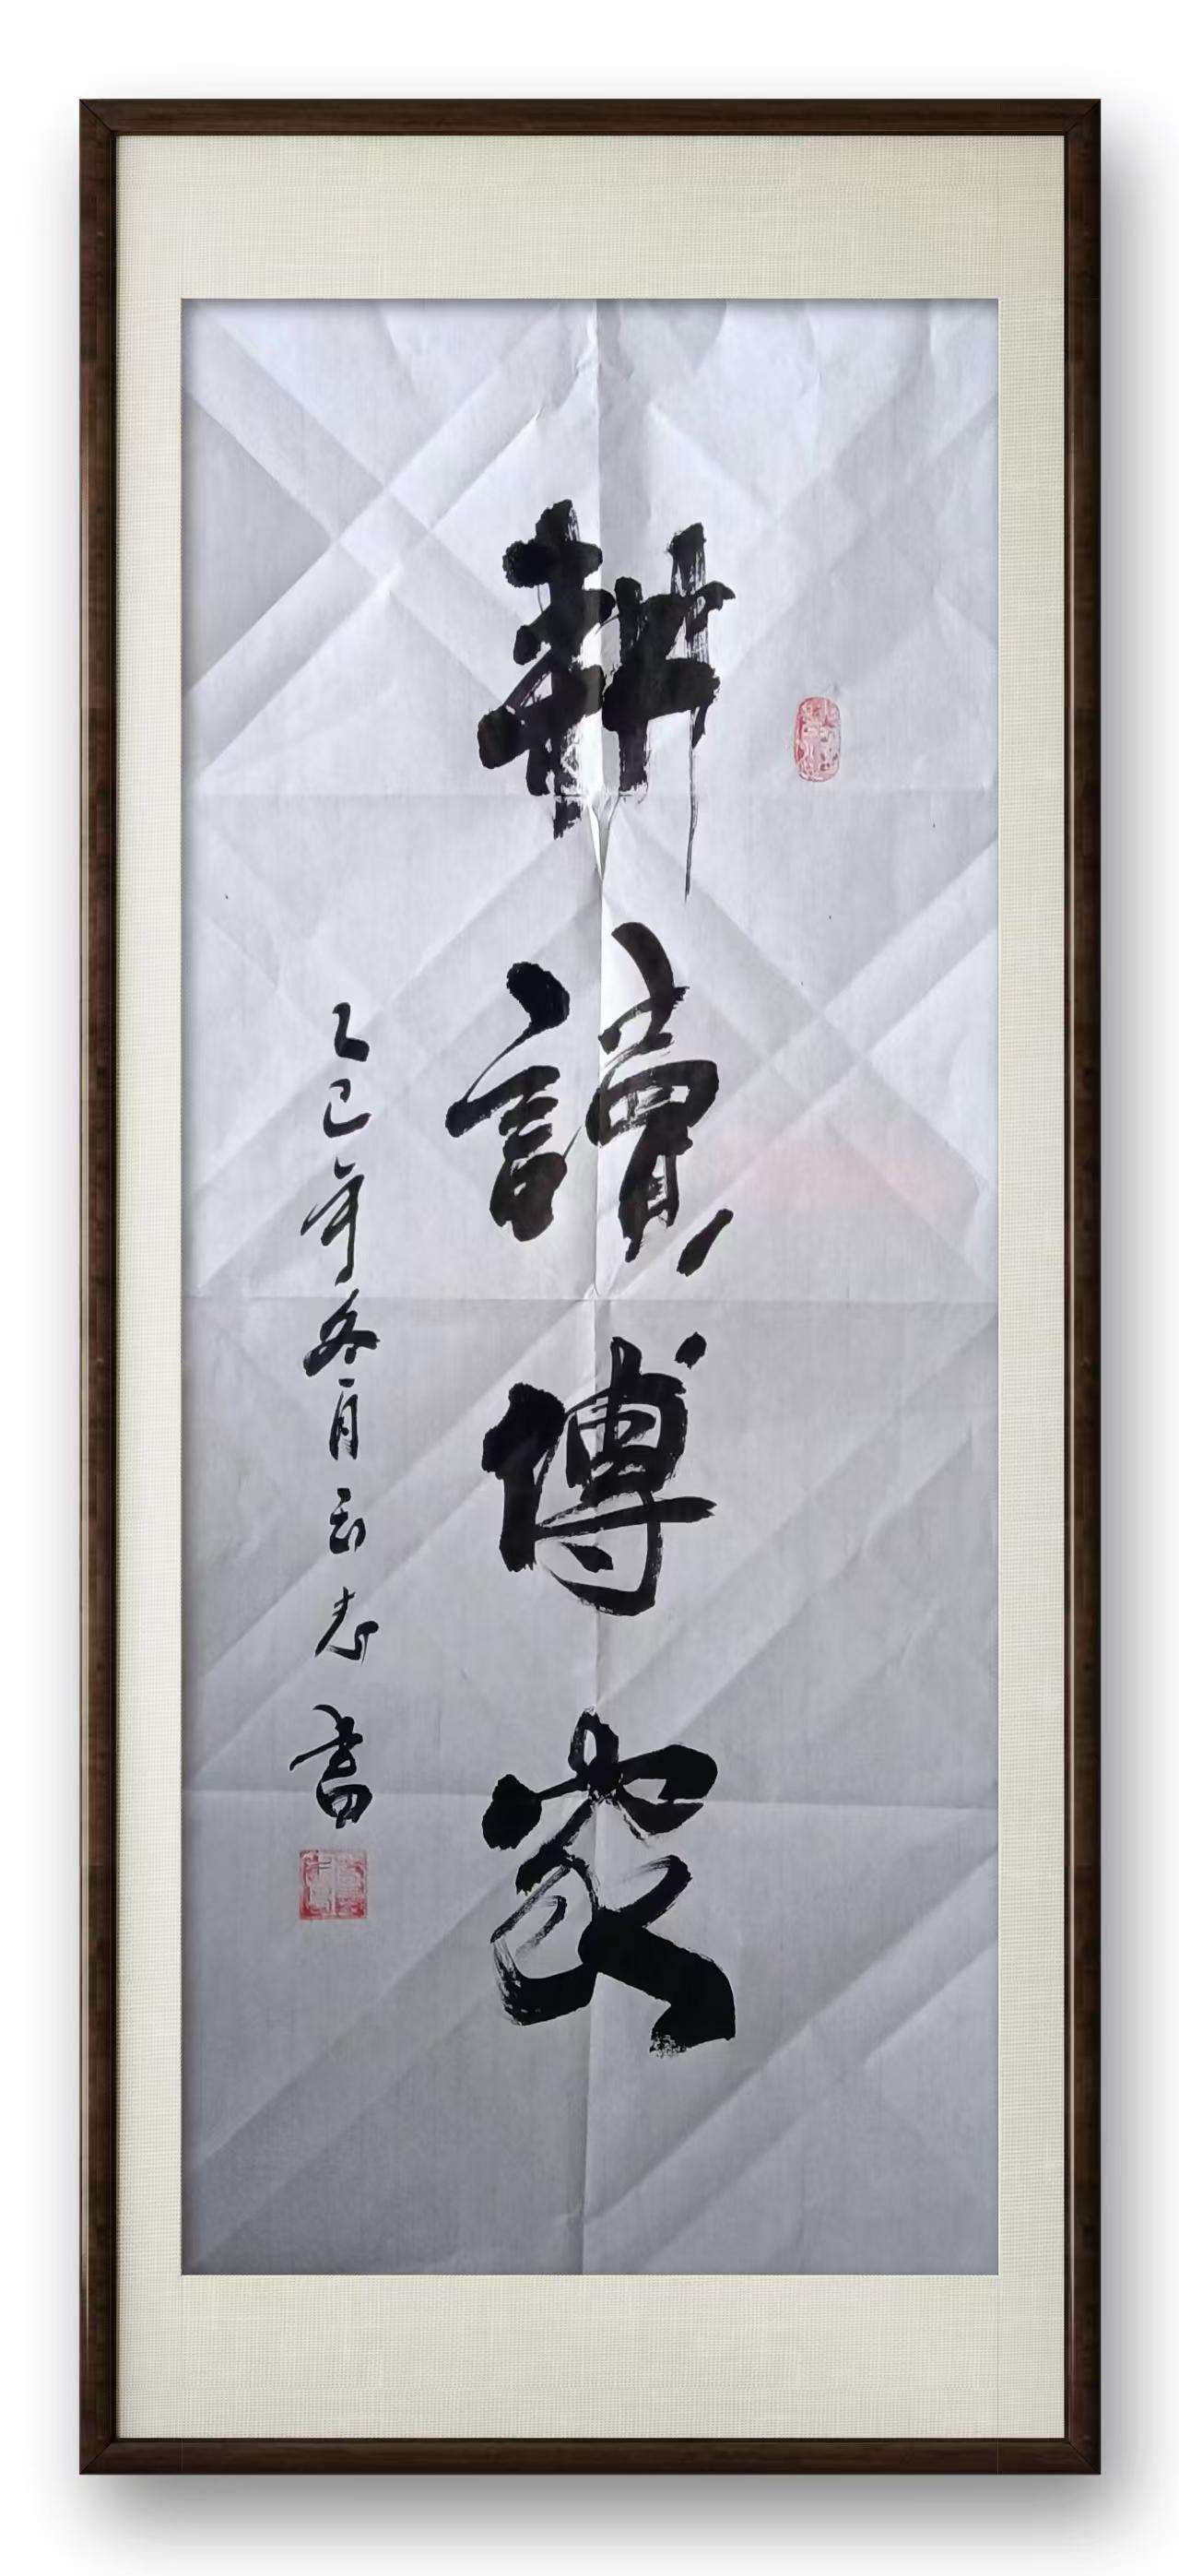 耕讀傳家
乙巳年冬月云志書